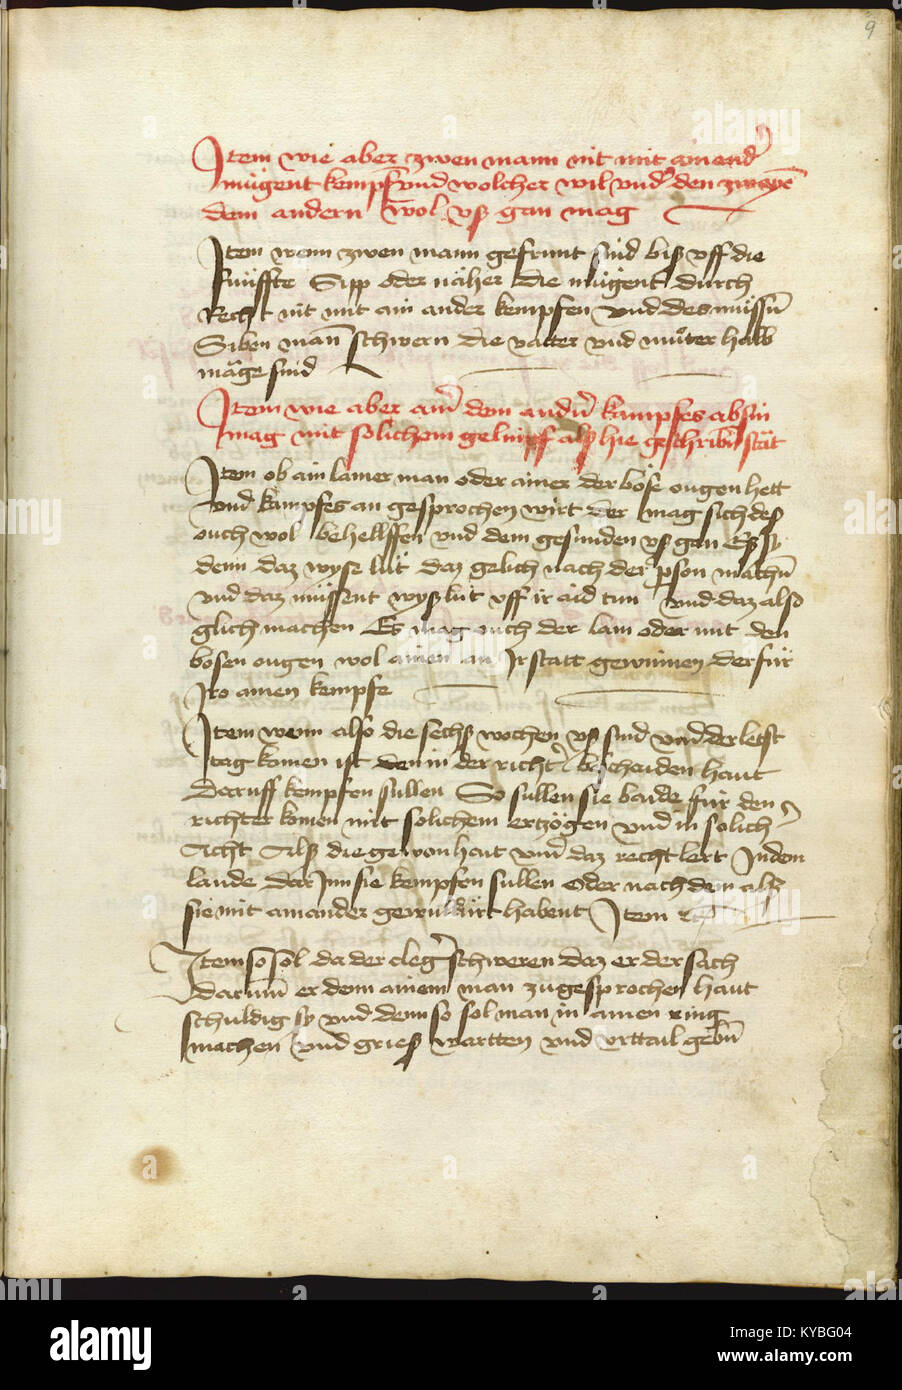 9
Item wie aber zwen mann nit mit ainend̉
mùgent kempfen vnd wolcher wil vnd̉ den zwayē
dem andern wol vß gan mag
Item wenn zwen mann gefrunt sind biß vff die
fùnffte Sipp oder nàher die mùgent durch
Recht nit mit ain ander kempfen vnd des mùssn̄
Siben man̄ schwern die vatter vnd mùter halb
màge sind
Item wie aber ainr̄ dem andrn̄ kampfes absin
mag mit solichem gelimpf alß hie geschribn̄ stàt
Item ob ain lamer man oder ainer der böse ougen hett
vnd kampfes an gesprochen wirt der mag sich deß
ouch wol behellffen vnd dem gesunden vß gan Eß sy
denn daz wyse lùt daz gelich nach der pson machn̄
vnd daz mùssent wyß lùt vff ir aid tun vnd daz also
glich machen Es mag ouch der lam oder mit den
bösen ougen wol ainen an Ir statt gewinnen der fùr
Iro ainen kempfe
Item wenn also die sechß wochen vß sind vnd der letst
tag komen ist den in der richtr̄ beschaiden haut
daruff kempfen sullen So sullen sie baide fùr den
richter komen mit solichem erzögen vnd in solich̉
Acht Alß die gewonhait vnd daz recht lert In dem
lande dar Jnn sie kempfen sullen oder nach dem alß
sie mit ainander gewulkùrt habent Item
Item so sol da der clegr̄ schweren daz er der sach
darumm̄ er dem ainem man zu gesprochen haut
schuldig sy vnd denn so sol man in ainen ring
machen vnd grieß wartten vnd vrttail gebn̄
alamy
Image ID: KYBG04
www.alamy.com